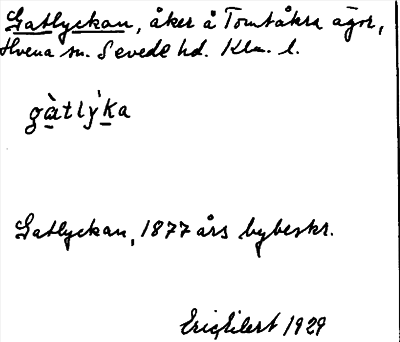 Gatlyckan, åker å Tomtåkra ägor,
Hvena sn. Sevede hd. Klm. l.
gàtlỳka
Gatlyckan, 1877 års bybeskr.
Eric Eilert 1929